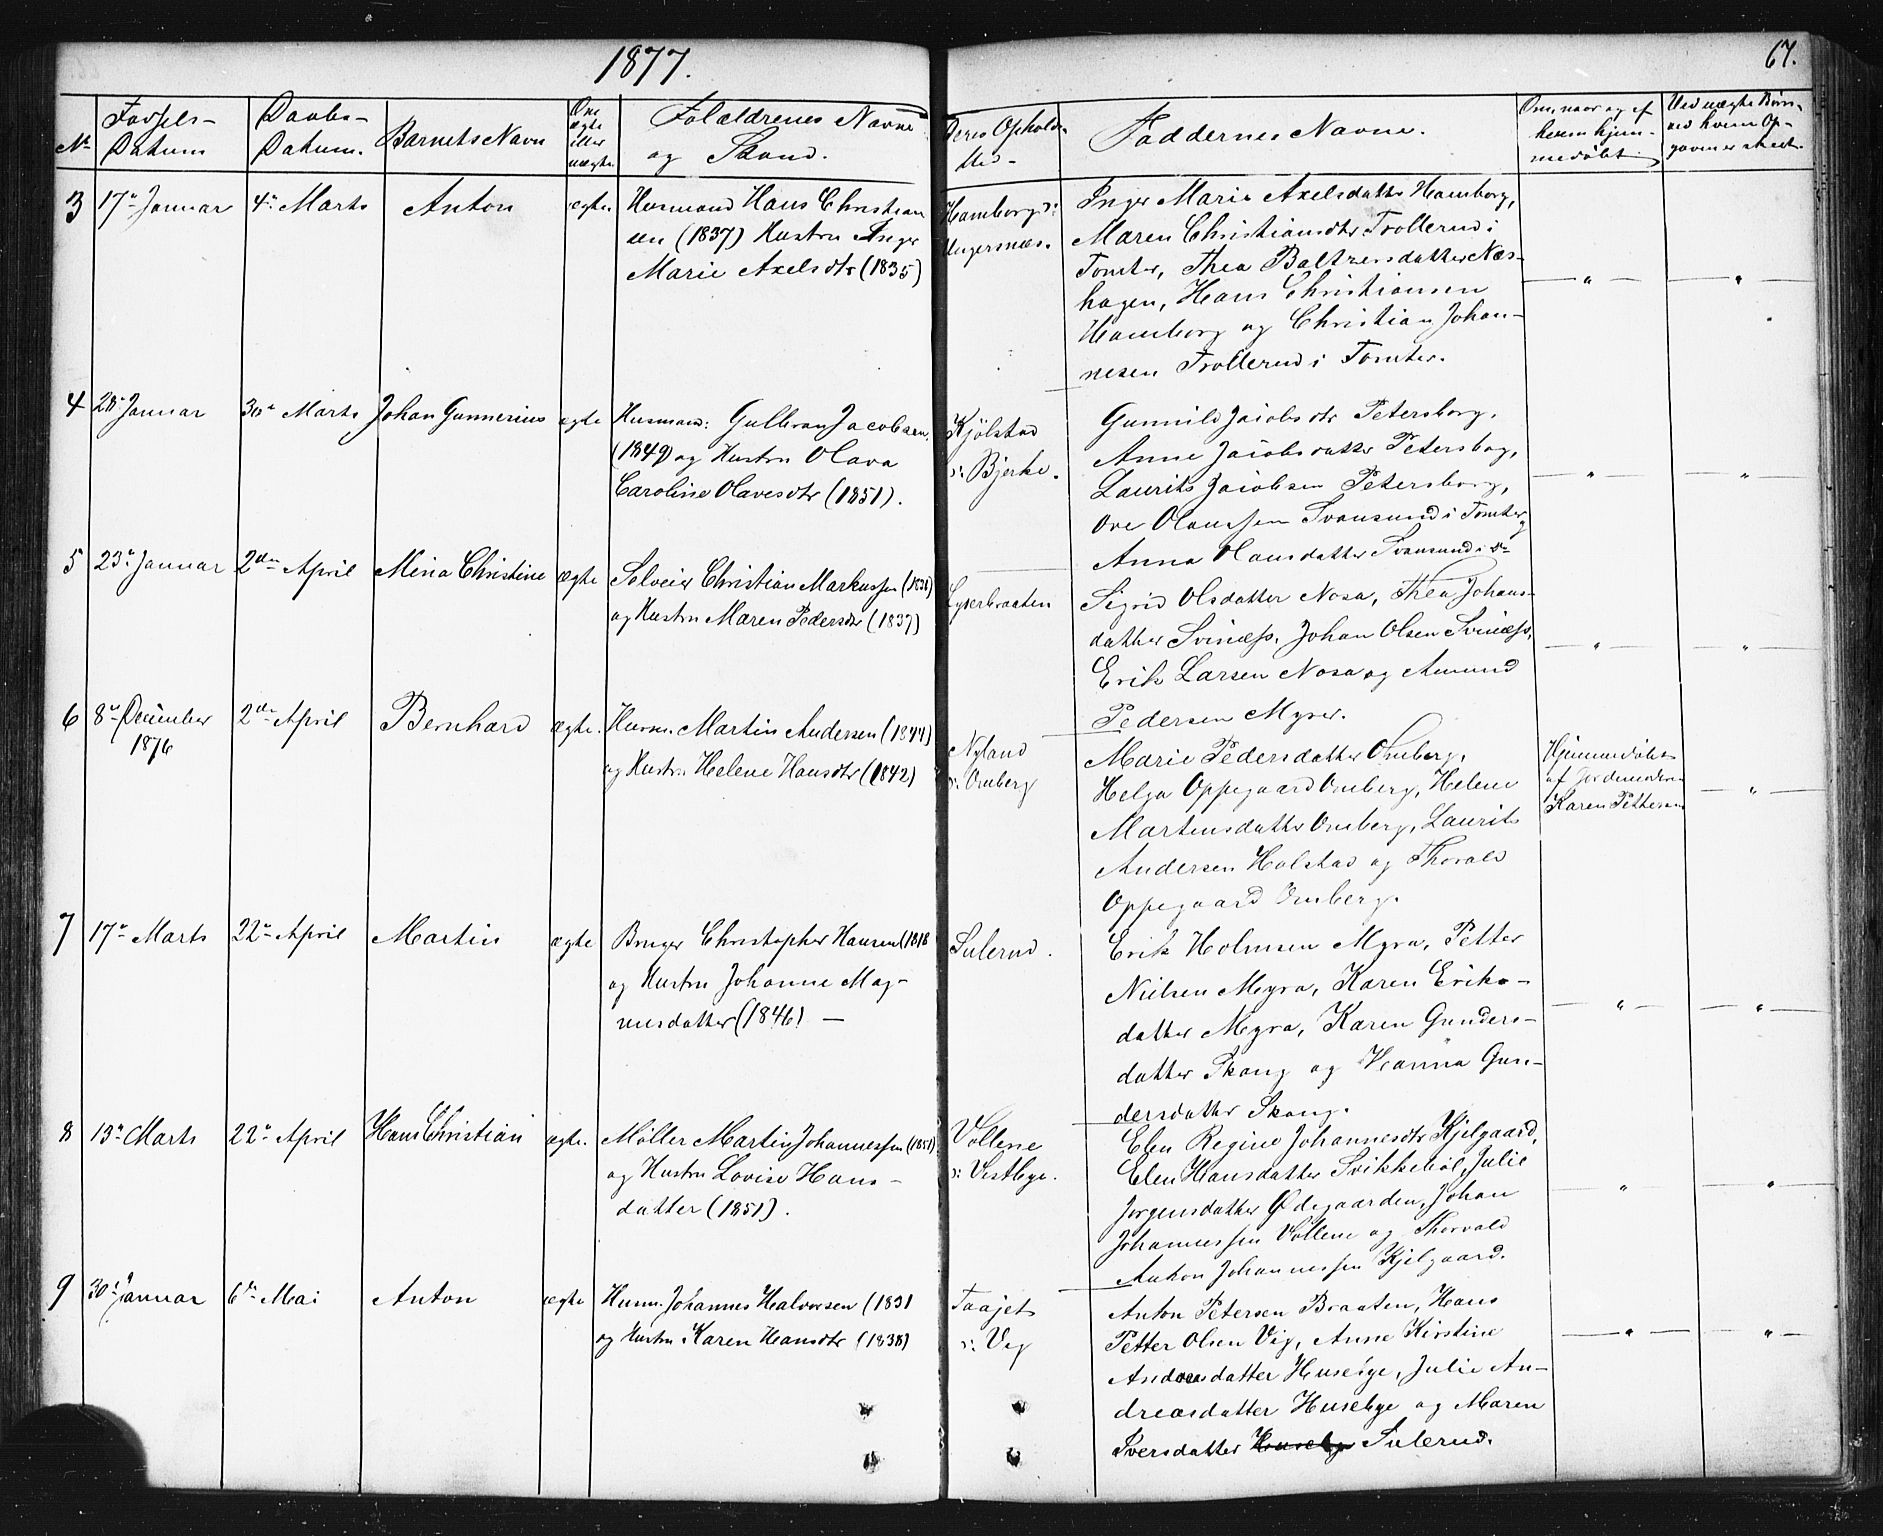 1877.
67.
No
Fødsels-
Datum
Daabs-
Datum.
Barnets Navn
Om
ægte
eller
uægte.
Forældrenes Navne
og Stand.
Deres Opholds-
sted-
Faddernes Navne.
Om, naar og af
hvem hjem-
medøbt.
Ved uægte Børn,
ved hvem Op-
gaven er skeet.
3
17de Januar
4de Marts
Anton
ægte.
Husmand Hans Christian
sen (1837) Hustru Inger
Marie Axelsdtr (1835)
Hamborg
Ungersnæs.
Inger Marie Axelsdatter Hamborg,
Maren Christiansdtr Trollerud i
Tomter, Thea Baltzersdatter Næs-
hagen, Hans Christiansen
Hamborg og Christian Johan-
nesen Trollerud i Tomter.
4
28de Januar
30de Marts
Johan Gunnerius
ægte
Husmand: Gulbran Jacobsen,
(1849) og Hustru Olava
Caroline Olavesdtr (1851).
Kjølstad
v: Bjerke.
Gunnild Jacobsdtr Petersborg,
Anne Jacobsdatter Petersborg,
Laurits Jacobsen Petersborg,
Ove Olaussen Svansund i Tomter og
Anna Olausdatter Svansund i do
5
23de Januar
2den April
Mina Christine
ægte
Selveier Christian Markussen (1838)
og Hustru Maren Pedersdtr (1837)
Lyserbraaten
Sigrid Olsdatter Nosa, Thea Johans-
datter Svinæss, Johan Olsen Svinæss,
Erik Larsen Nosa og Amund
Pedersen Myrer.
6
8de December
1876
2den April
Bernhard
ægte.
Husm. Martin Andersen (1844)
og Hustru Helene Hansdtr (1842)
Nyland
v: Omberg
Marie Pedersdatter Omberg,
Helga Oppegaard Omberg, Helene
Martinsdatter Omberg, Laurits
Andersen Holstad og Thorald
Oppegaard Omberg.
Hjemmedøbt
af Jordemoderen
Karen Pettersen
7
17de Marts
22de April
Martin
ægte
Bruger Christopher Hansen (1818
og Hustru Johanne Mag-
nusdatter (1846) —
Sulerud.
Erik Holmsen Myra, Petter
Nielsen Myra, Karen Eriks-
datter Myra, Karen Gunders-
datter Skoug og Hanna Gun-
dersdatter Skoug.
8
13de Marts
22de April
Hans Christian
ægte.
Møller Martin Johannessen (1851)
og Hustru Lovise Hans-
datter (1851).
Vollene
v: Vestbye.
Elen Regine Johannesdtr Kjelgaard,
Elen Hansdatter Svikkebøl, Julie
Jørgensdatter Ødegaarden, Johan
Johannessen Vollene og Thorvald
Anton Johannessen Kjelgaard.
9
30de Januar
6te Mai
Anton
ægte
Husm. Johannes Halvorsen (1831
og Hustru Karen Hansdtr (1838)
Taajet
v: Vig
Anton Petersen Braaten, Hans
Petter Olsen Vig, Anne Kirstine
Andreasdatter Husebye, Julie An-
dreasdatter Husebye og Maren
Iversdatter Husebye Sulerud.